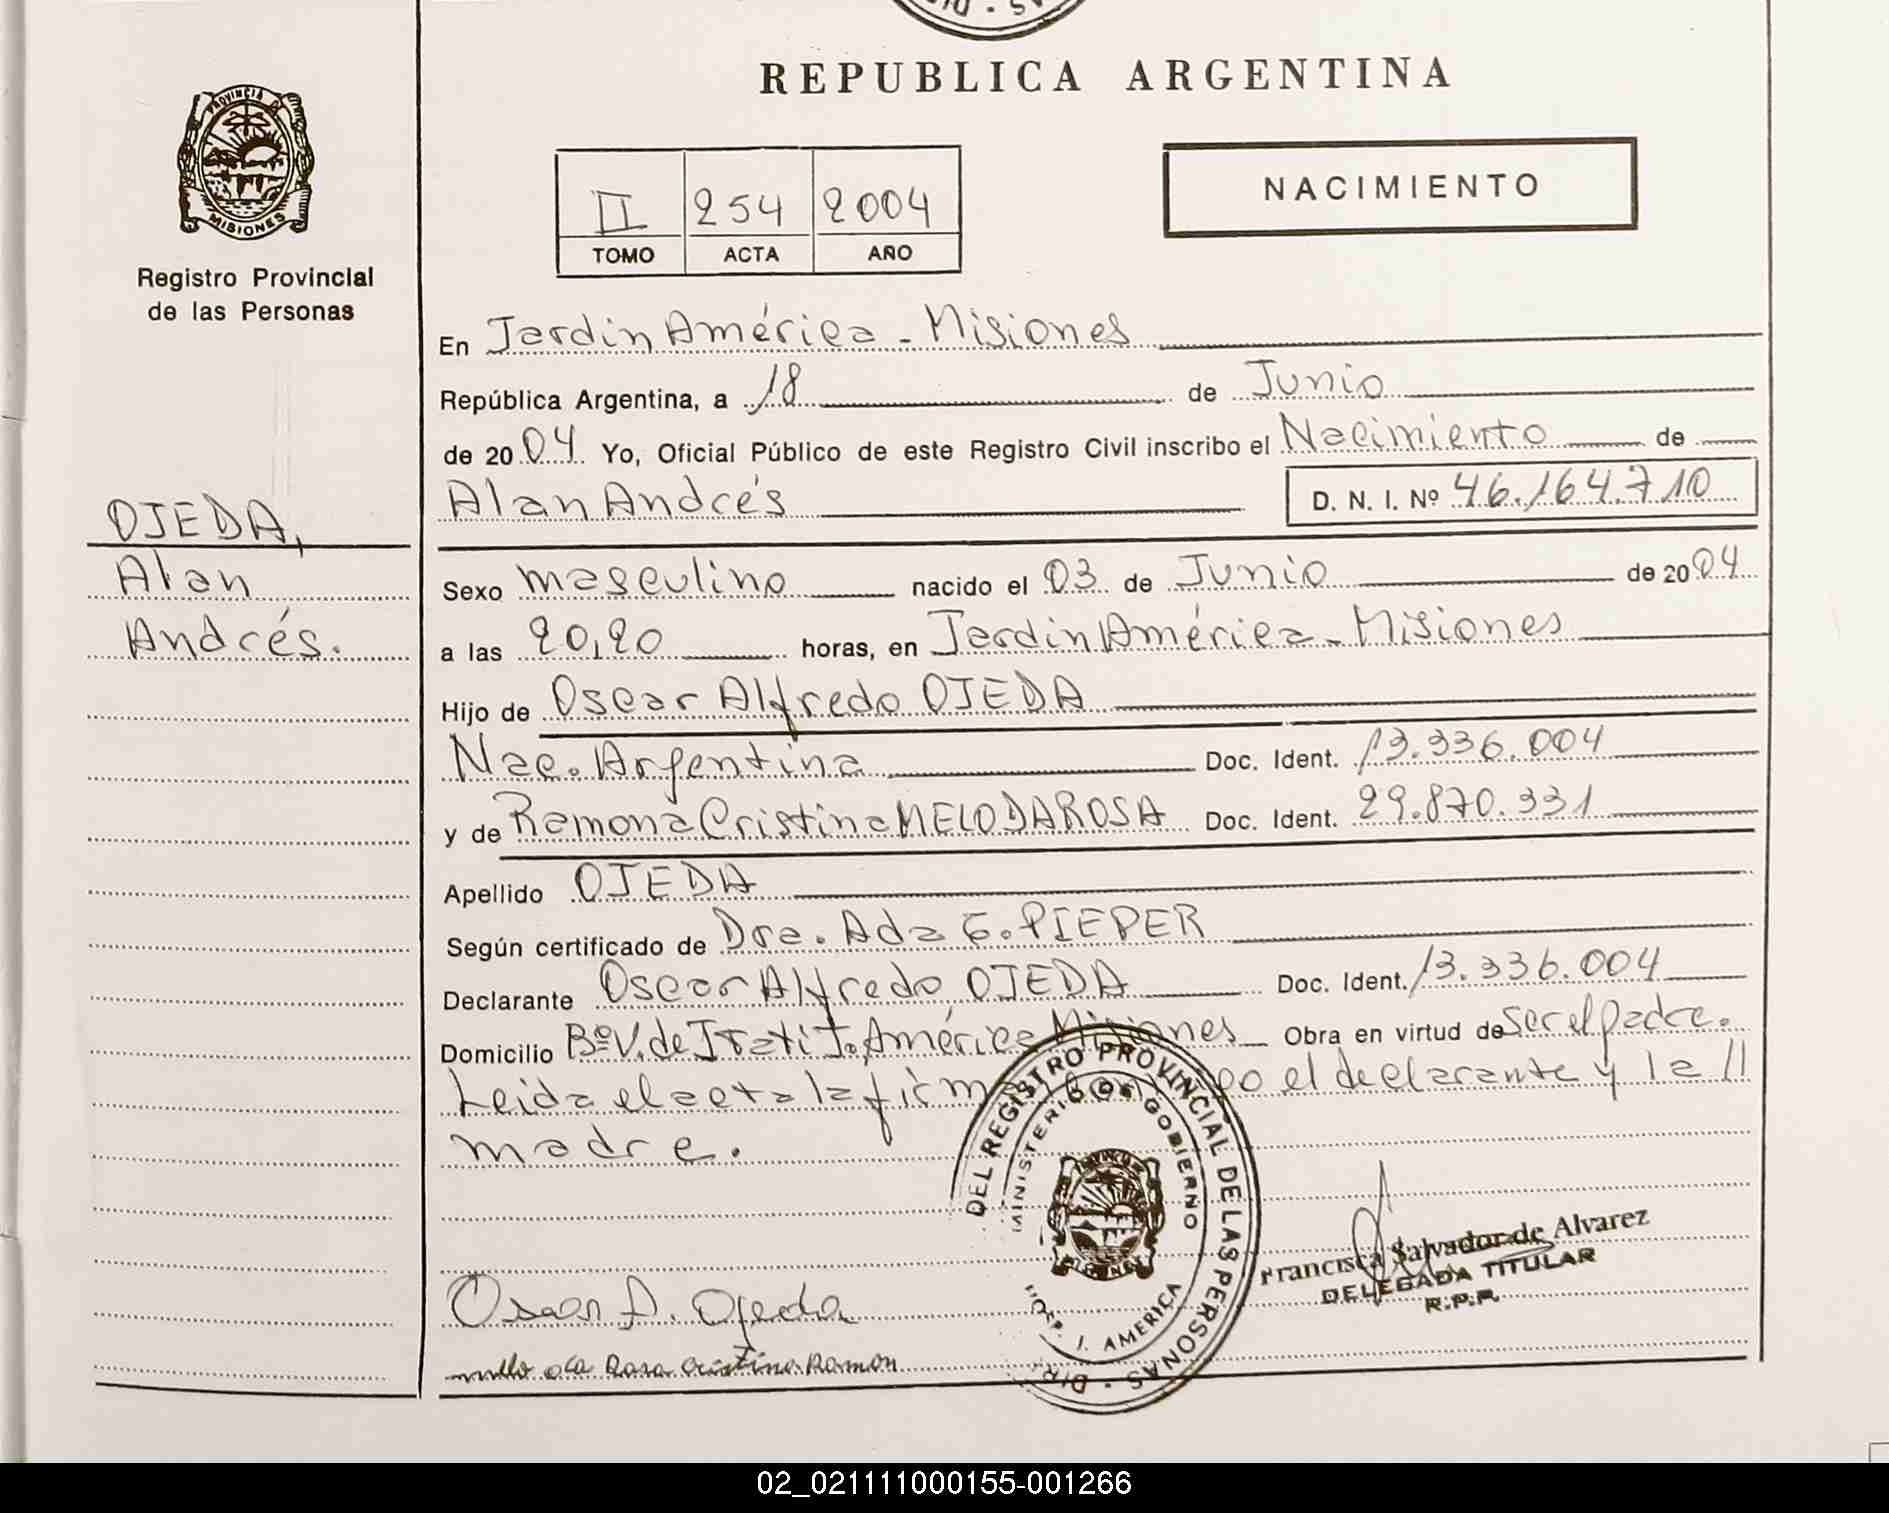 DIR - SAS
REPUBLICA ARGENTINA
PROVINCIA D
MISIONES
Registro Provincial
de las Personas
II 254 2004
TOMO ACTA AÑO
NACIMIENTO
En Jardin América - Misiones
República Argentina, a 18 de Junio
de 2004 Yo, Oficial Público de este Registro Civil inscribo el Nacimiento de
Alan Andrés D. N. I. Nº 46.164.710
OJEDA,
Alan
Andrés.
Sexo masculino nacido el 03 de Junio de 2004
a las 20,20 horas, en Jardin América - Misiones
Hijo de Oscar Alfredo OJEDA
Nac. Argentina Doc. Ident. 13.336.004
y de Ramona Cristina MELO DA ROSA Doc. Ident. 29.870.331
Apellido OJEDA
Según certificado de Dra. Ada G. PIEPER
Declarante Oscar Alfredo OJEDA Doc. Ident. 13.336.004
Domicilio BºV. de Itati J. América Misiones Obra en virtud de ser el padre.
Leida el acta la firma conmigo el declarante y la //
madre.
DIR. DEL REGISTRO PROVINCIAL DE LAS PERSONAS
MINISTERIO DE GOBIERNO
J. AMERICA
Francisca Salvador de Alvarez
DELEGADA TITULAR
R.P.P.
Oscar A. Ojeda
mello da Rosa Cristina Ramon
02_021111000155-001266